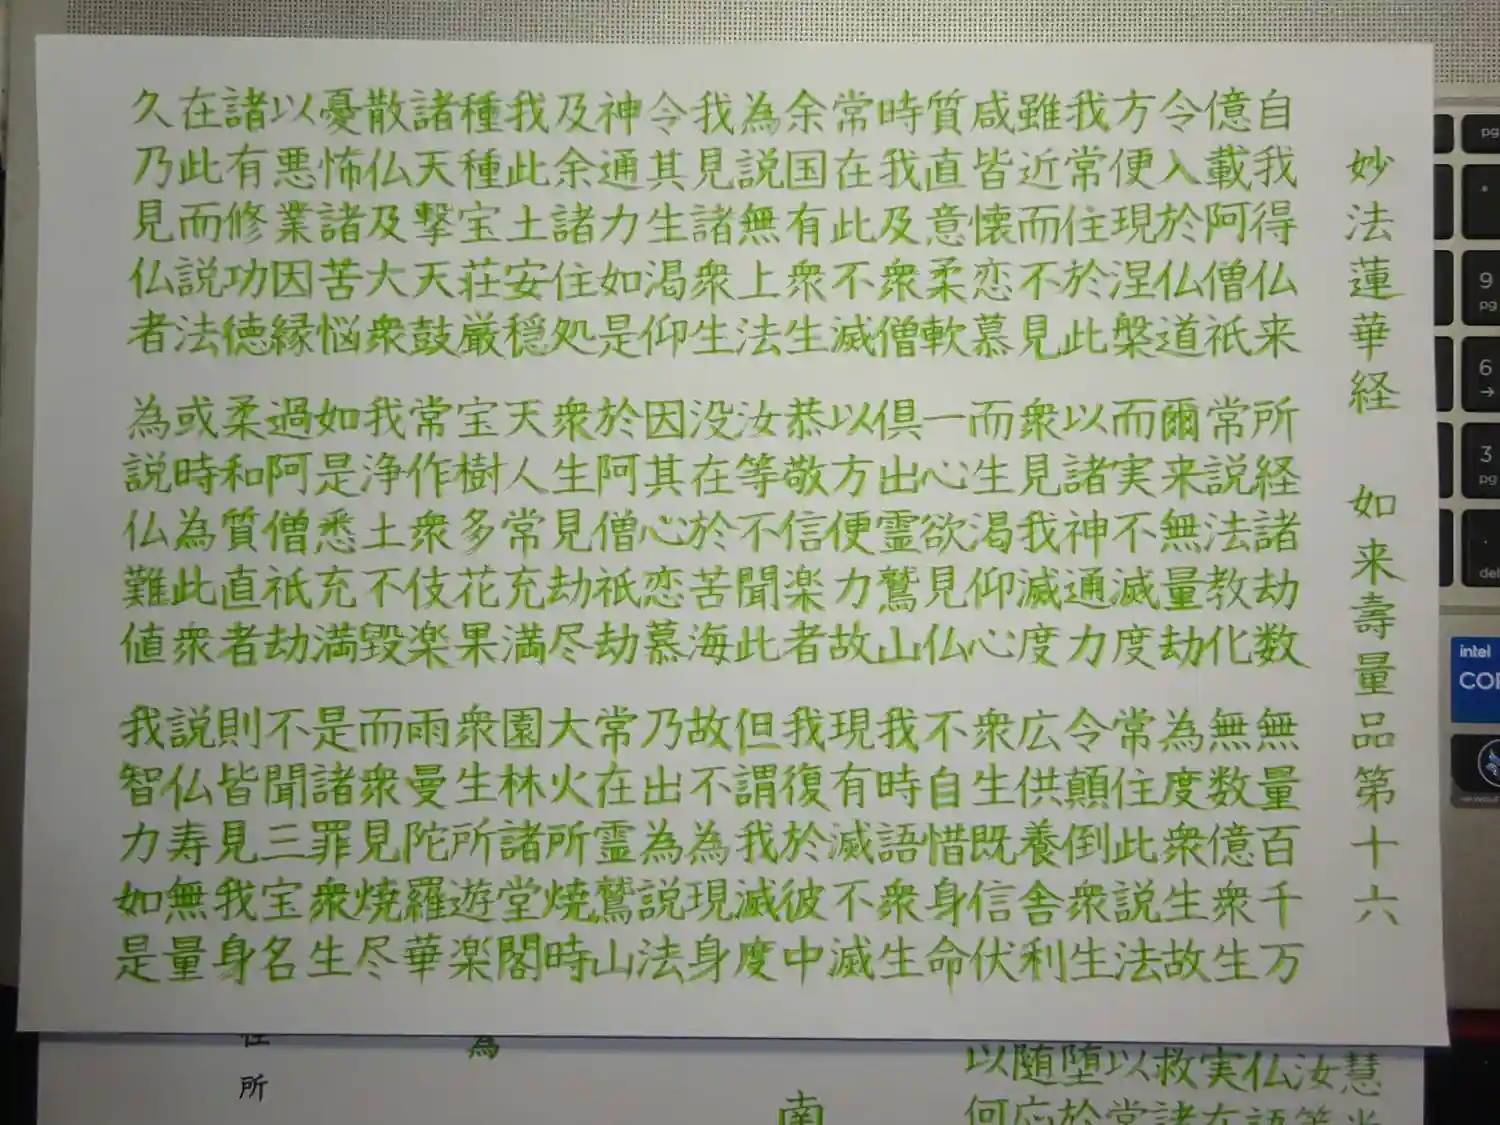 妙法蓮華経 如来壽量品第十六
自我得仏来 所経諸劫数 無量百千万
億載阿僧祇 常説法教化 無数億衆生
令入於仏道 爾来無量劫 為度衆生故
方便現涅槃 而実不滅度 常住此説法
我常住於此 以諸神通力 令顛倒衆生
雖近而不見 衆見我滅度 広供養舎利
咸皆懐恋慕 而生渇仰心 衆生既信伏
質直意柔軟 一心欲見仏 不自惜身命
時我及衆僧 倶出霊鷲山 我時語衆生
常在此不滅 以方便力故 現有滅不滅
余国有衆生 恭敬信楽者 我復於彼中
為説無上法 汝等不聞此 但謂我滅度
我見諸衆生 没在於苦海 故不為現身
令其生渇仰 因其心恋慕 乃出為説法
神通力如是 於阿僧祇劫 常在霊鷲山
及余諸住処 衆生見劫尽 大火所焼時
我此土安穏 天人常充満 園林諸堂閣
種種宝荘厳 宝樹多花果 衆生所遊楽
諸天撃天鼓 常作衆伎楽 雨曼陀羅華
散仏及大衆 我浄土不毀 而衆見焼尽
憂怖諸苦悩 如是悉充満 是諸罪衆生
以悪業因縁 過阿僧祇劫 不聞三宝名
諸有修功徳 柔和質直者 則皆見我身
在此而説法 或時為此衆 説仏寿無量
久乃見仏者 為説仏難値 我智力如是
慧
汝等
仏語
実在
救諸
以常
堕於
随応
以何
南
為
住所